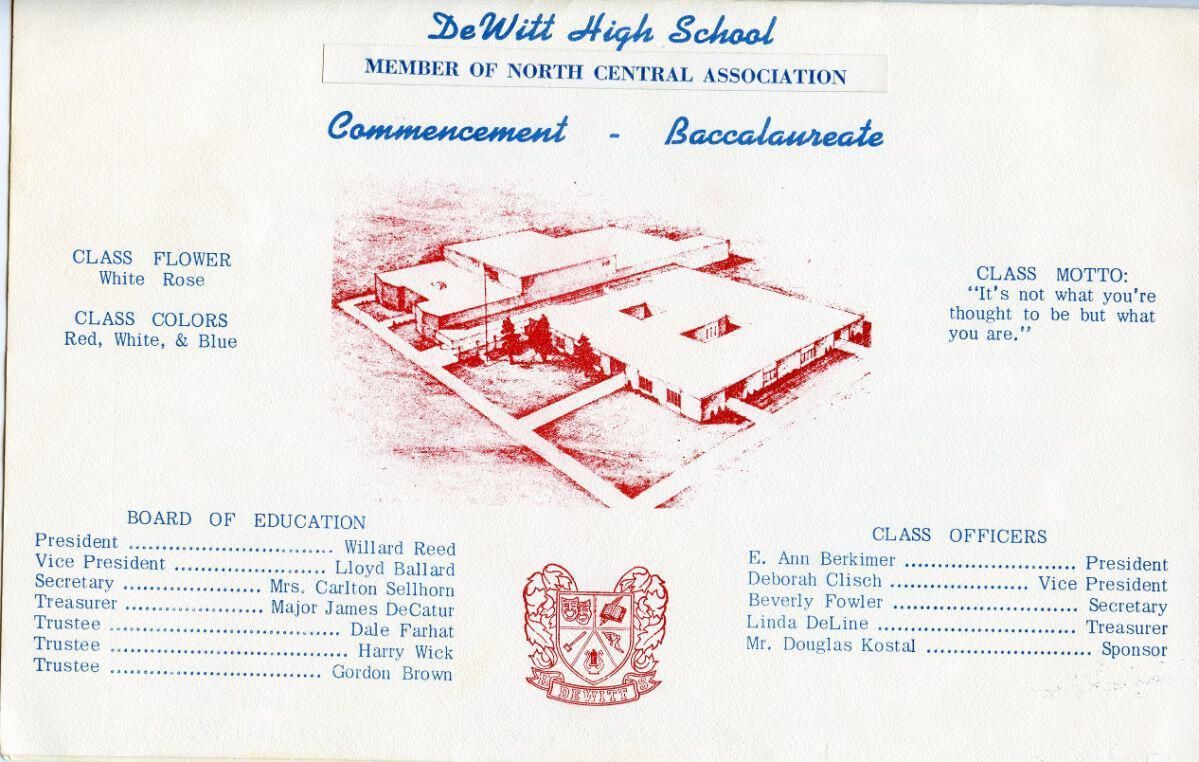 DeWitt High School
MEMBER OF NORTH CENTRAL ASSOCIATION
Commencement - Baccalaureate
CLASS FLOWER
White Rose
CLASS COLORS
Red, White, & Blue
CLASS MOTTO:
"It's not what you're
thought to be but what
you are."
BOARD OF EDUCATION
President .............................. Willard Reed
Vice President ...................... Lloyd Ballard
Secretary .................... Mrs. Carlton Sellhorn
Treasurer .................... Major James DeCatur
Trustee .................................. Dale Farhat
Trustee ................................... Harry Wick
Trustee ............................... Gordon Brown
CLASS OFFICERS
E. Ann Berkimer ......................... President
Deborah Clisch .................... Vice President
Beverly Fowler ........................... Secretary
Linda DeLine ............................. Treasurer
Mr. Douglas Kostal ........................ Sponsor
DEWITT